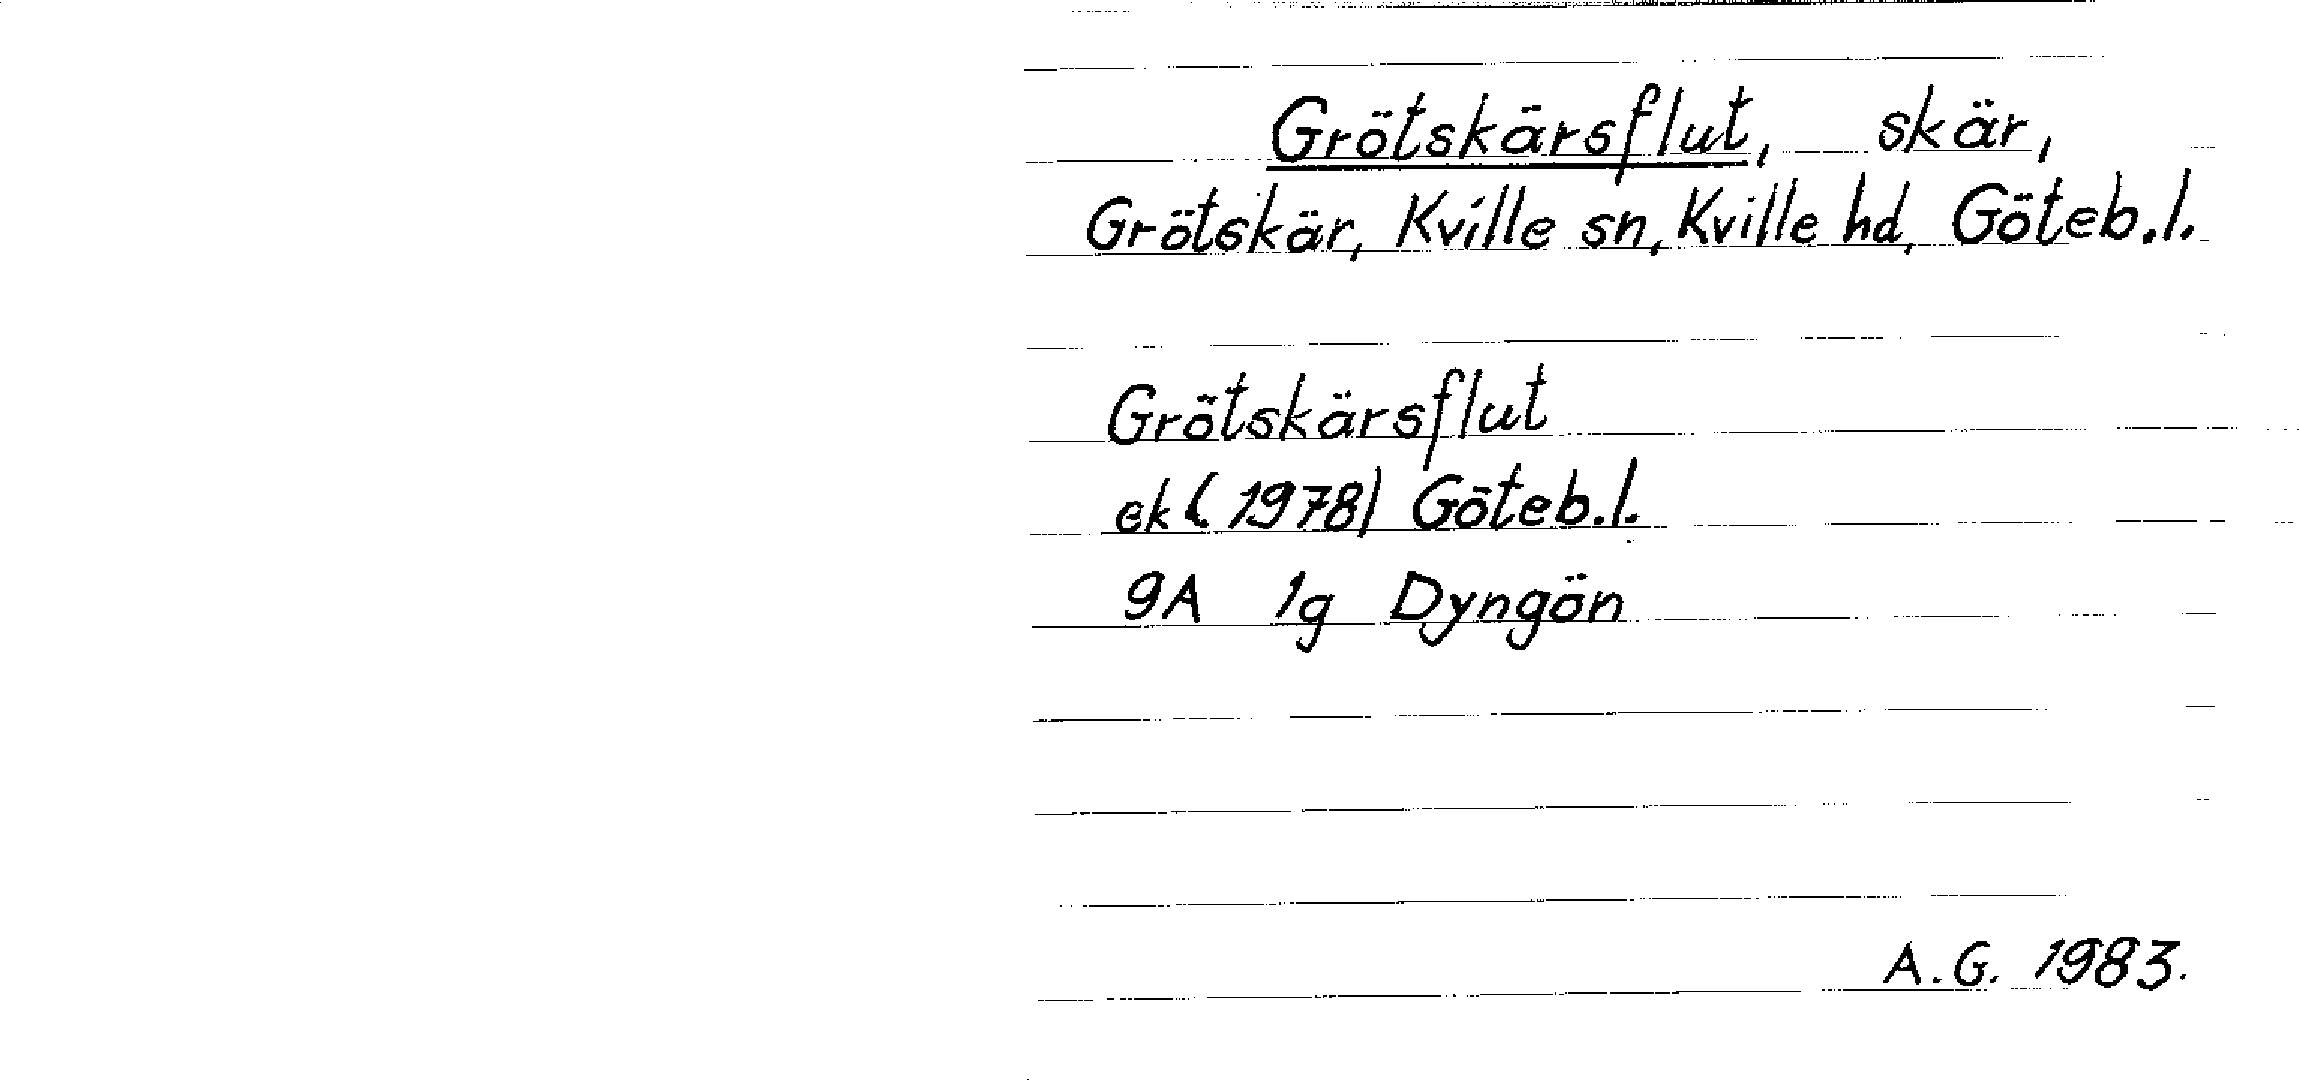 Grötskärsflut, skär,
Grötskär, Kville sn, Kville hd, Göteb.l.
Grötskärsflut
ek (1978) Göteb.l.
9A 1g Dyngön
A.G. 1983.